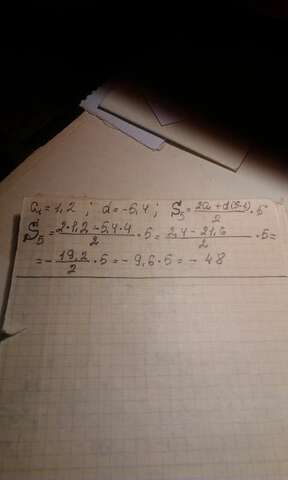 a₁ = 1,2 ; d = -5,4 ; S₅ = (2a₁ + d(5-1))/2 · 5
S₅ = (2·1,2 - 5,4·4)/2 · 5 = (2,4 - 21,6)/2 · 5 =
= - 19,2/2 · 5 = - 9,6 · 5 = - 48